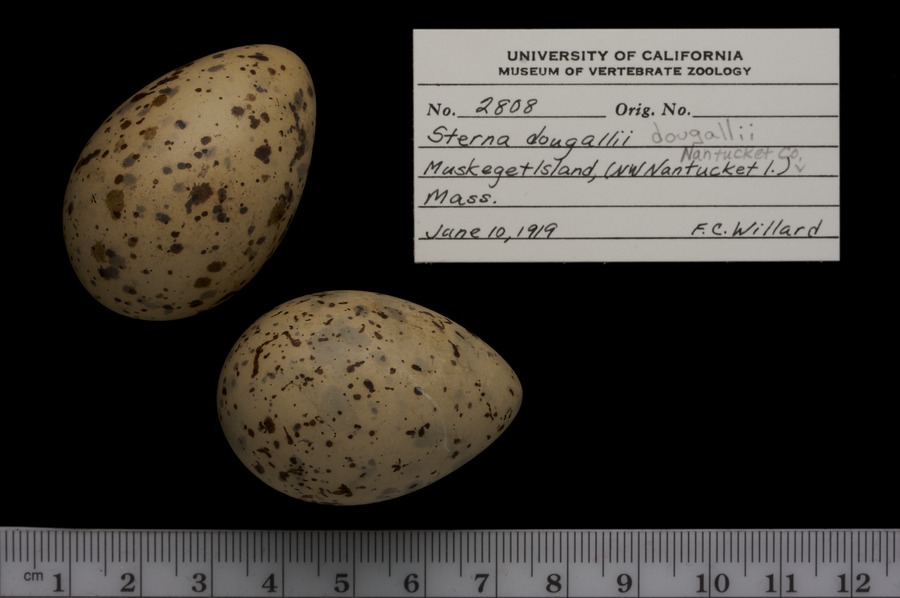 UNIVERSITY OF CALIFORNIA
MUSEUM OF VERTEBRATE ZOOLOGY
No. 2808 Orig. No.
Sterna dougallii dougallii
Nantucket Co.
Muskeget Island, (NW Nantucket I.)
Mass.
June 10, 1919 F.C. Willard
cm 1 2 3 4 5 6 7 8 9 10 11 12